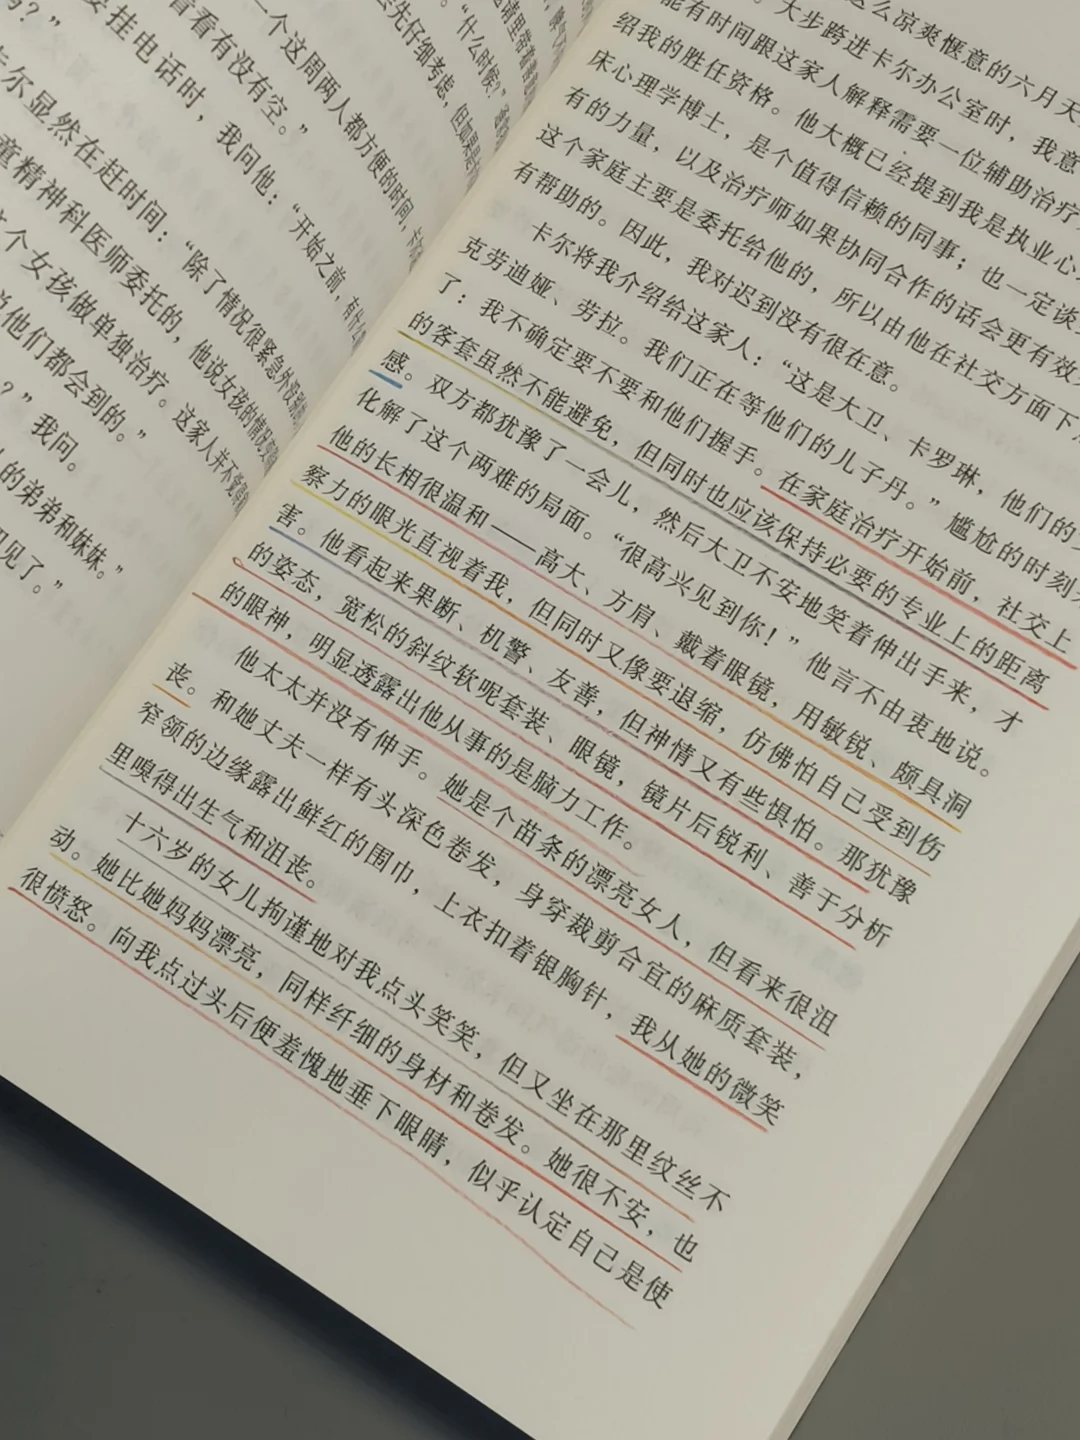 吗？”
要挂电话时，我问他：“开始之前，有什么
卡尔显然在赶时间：“除了情况很紧急外没别的
童精神科医师委托的，他说女孩的情况
个女孩做单独治疗。这家人并不觉得
说他们都会到的。”
？”我问。
的弟弟和妹妹。”
见了。”
看看有没有空。”
一个这周两人都方便的时间，卡
会先仔细考虑，但如果是
“什么时候？”
这么凉爽惬意的六月天
。大步跨进卡尔办公室时，我意
能有时间跟这家人解释需要一位辅助治疗
绍我的胜任资格。他大概已经提到我是执业心
床心理学博士，是个值得信赖的同事；也一定谈
有的力量，以及治疗师如果协同合作的话会更有效
这个家庭主要是委托给他的，所以由他在社交方面下
有帮助的。因此，我对迟到没有很在意。
卡尔将我介绍给这家人：“这是大卫、卡罗琳，他们的
克劳迪娅、劳拉。我们正在等他们的儿子丹。”尴尬的时刻
了：我不确定要不要和他们握手。在家庭治疗开始前，社交上
的客套虽然不能避免，但同时也应该保持必要的专业上的距离
感。双方都犹豫了一会儿，然后大卫不安地笑着伸出手来，才
化解了这个两难的局面。“很高兴见到你！”他言不由衷地说。
他的长相很温和——高大、方肩、戴着眼镜，用敏锐、颇具洞
察力的眼光直视着我，但同时又像要退缩，仿佛怕自己受到伤
害。他看起来果断、机警、友善，但神情又有些惧怕。那犹豫
的姿态，宽松的斜纹软呢套装、眼镜，镜片后锐利、善于分析
的眼神，明显透露出他从事的是脑力工作。
他太太并没有伸手。她是个苗条的漂亮女人，但看来很沮
丧。和她丈夫一样有头深色卷发，身穿裁剪合宜的麻质套装，
窄领的边缘露出鲜红的围巾，上衣扣着银胸针，我从她的微笑
里嗅得出生气和沮丧。
十六岁的女儿拘谨地对我点头笑笑，但又坐在那里纹丝不
动。她比她妈妈漂亮，同样纤细的身材和卷发。她很不安，也
很愤怒。向我点过头后便羞愧地垂下眼睛，似乎认定自己是使